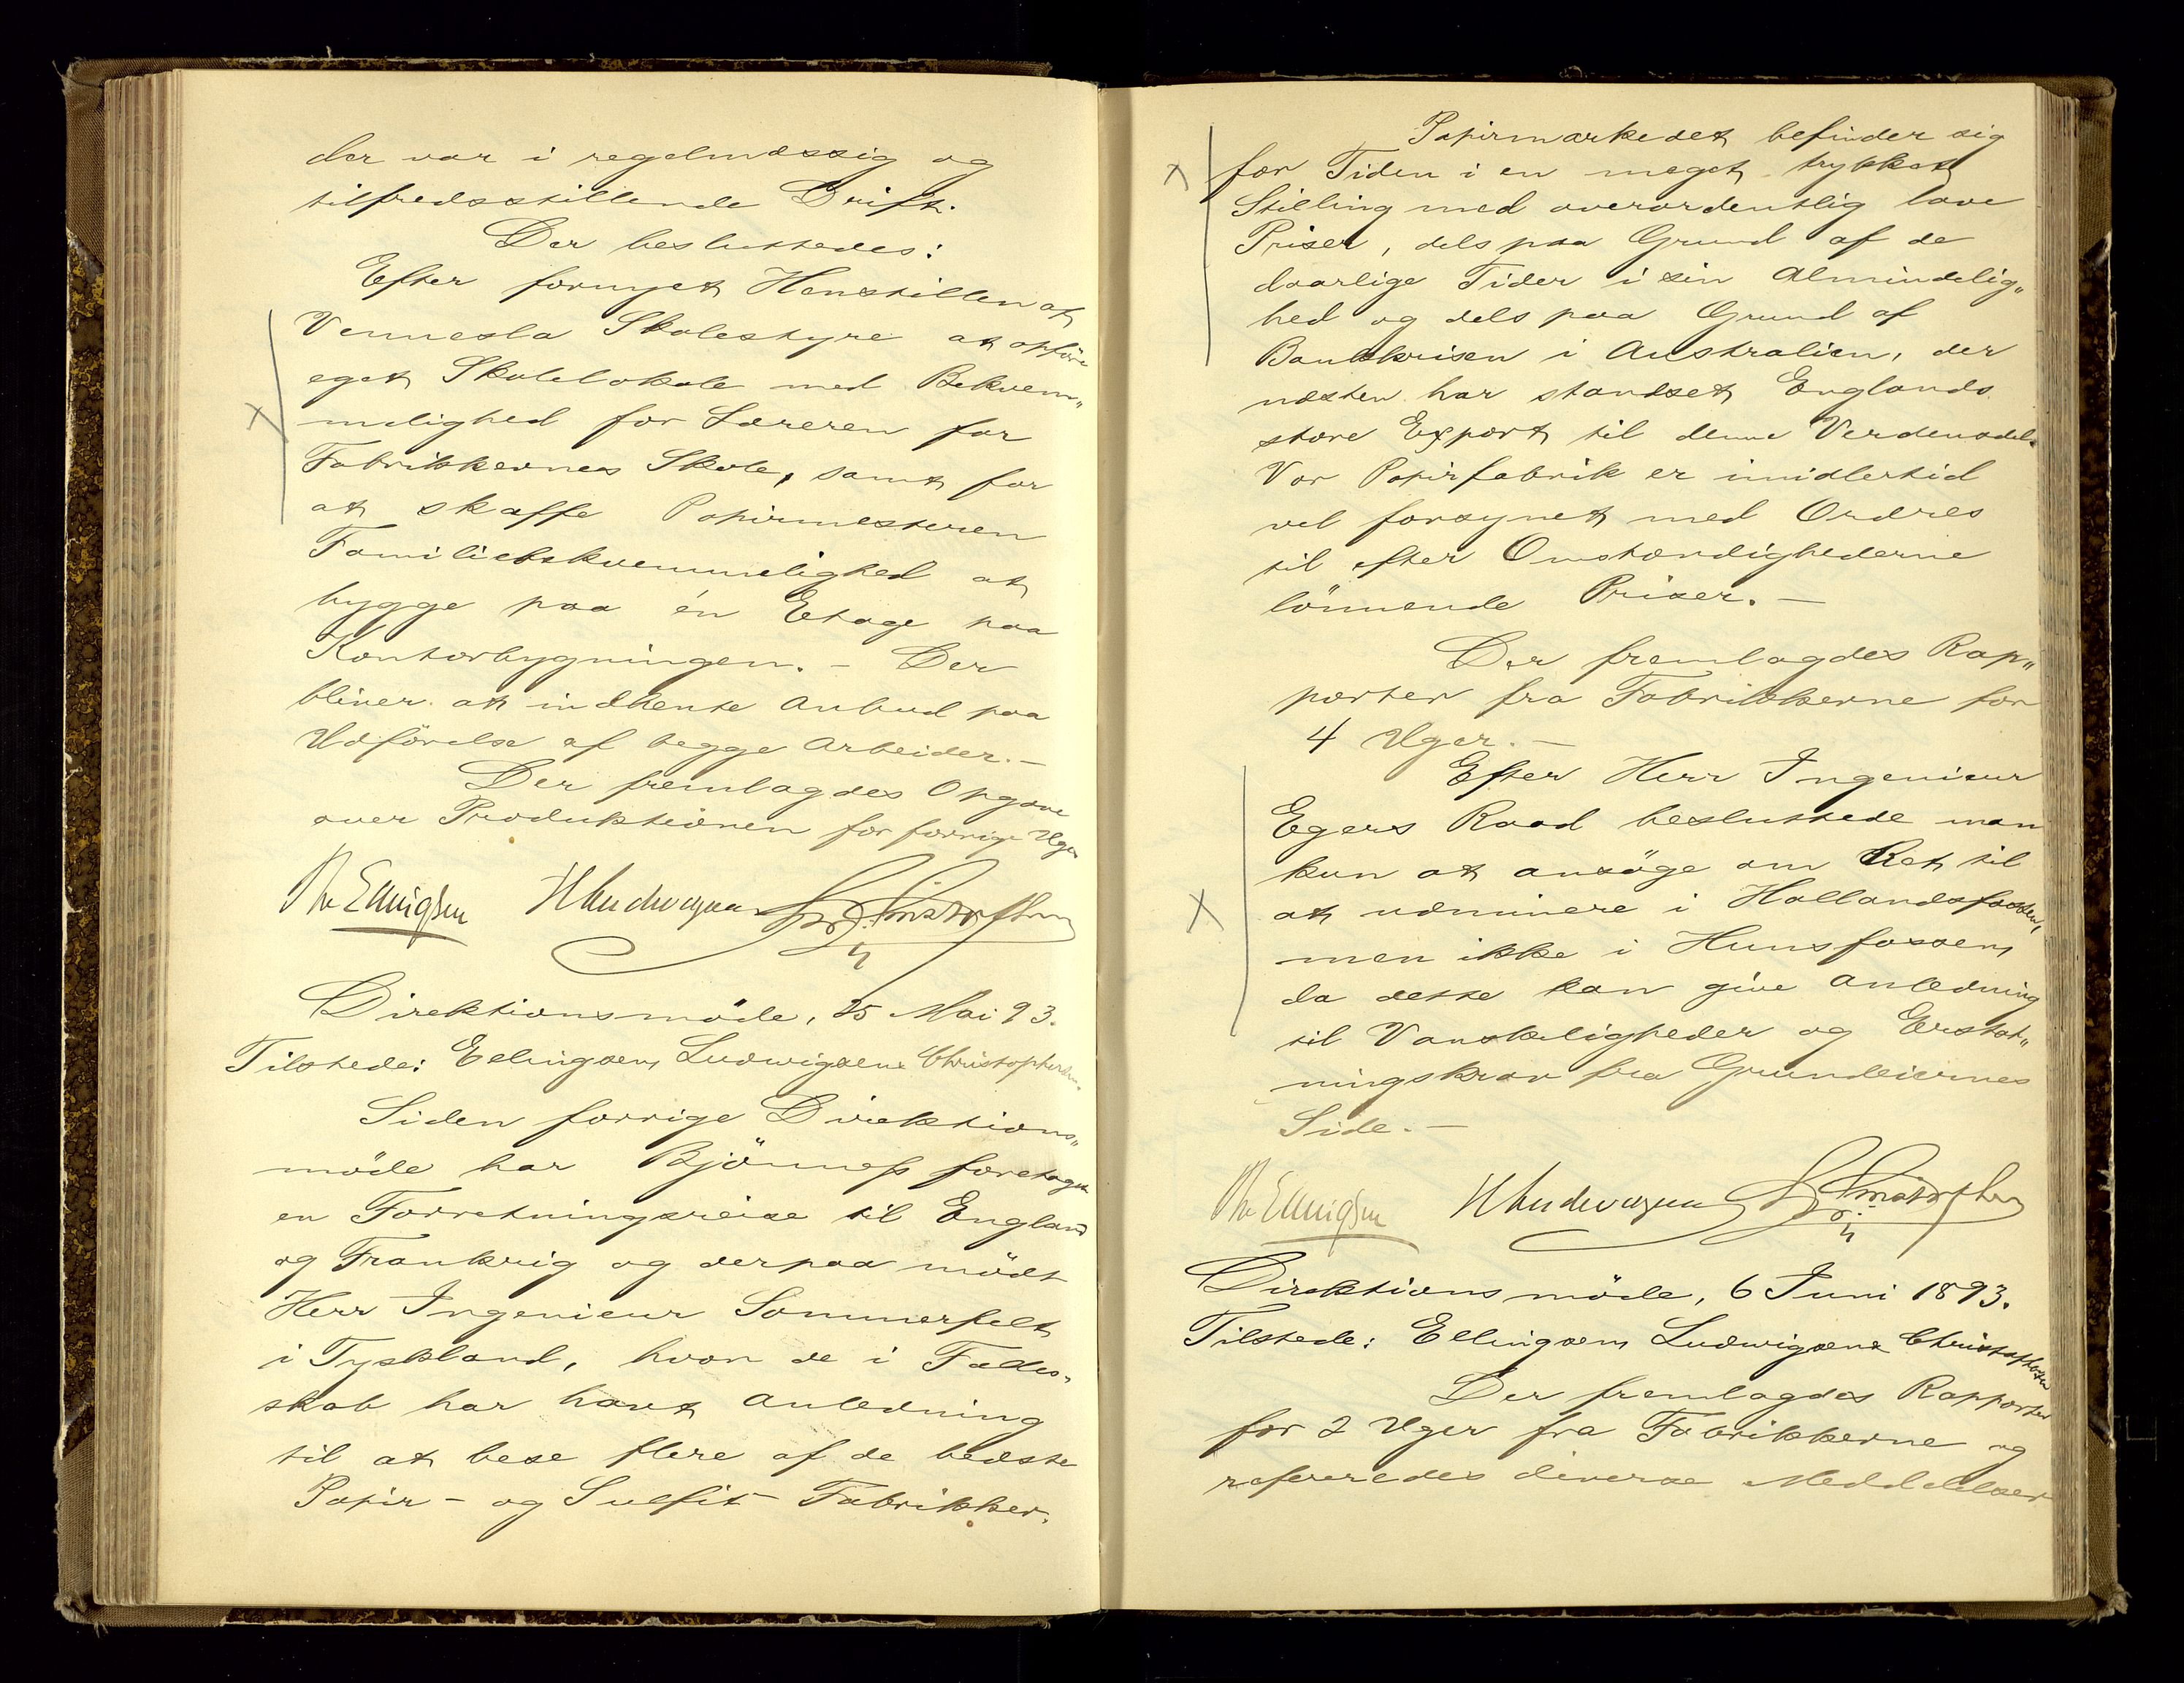 der var i regelmæssig og
tilfredsstillende Drift.
Der besluttedes:
Efter fornyet Henstillen af
Vennesla Skolestyre at opföre
eget Skolelokale med Bekvem„
melighed for Læreren for
Fabrikkernes Skole, samt for
at skaffe Papirmesteren
Familiebekvemmelighed at
bygge paa én Etage paa
Kontorbygningen. – Der
bliver at indhente Anbud paa
Udförelse af begge Arbeider. –
Der fremlagdes Opgave
over Produktionen for forrige Uger
Th Ellingsen HLudwigsen
Direktionsmöde, 25 Mai 93.
Tilstede: Ellingsen, Ludwigsen & Christophersen.
Siden forrige Direktions„
möde har Bjönness foretaget
en Forretningsreise til England
og Frankrig og derpaa mödt
Herr Ingenieur Sommerfelt
i Tyskland, hvor de i Fælles„
skab har havt Anledning
til at bese flere af de bedste
Papir- og Sulfit-Fabrikker.
Papirmarkedet befinder sig
for Tiden i en meget trykket
Stilling med overordentlig lave
Priser, dels paa Grund af de
daarlige Tider i sin Almindelig„
hed og dels paa Grund af
Bankkrisen i Australien, der
næsten har standset Englands
store Export til denne Verdensdel.
Vor Papirfabrik er imidlertid
vel forsynet med Ordres
til efter Omstændighederne
lönnende Priser. –
Der fremlagdes Rap„
porter fra Fabrikkerne for
4 Uger. –
Efter Herr Ingenieur
Egers Raad besluttede man
kun at ansöge om Ret til
at udminere i Hallandsfossen,
men ikke i Hunsfossen,
da dette kan give Anledning
til Vanskeligheder og Erstat„
ningskrav fra Grundeiernes
Side. –
Th Ellingsen HLudwigsen
Direktionsmöde, 6 Juni 1893.
Tilstede: Ellingsen, Ludwigsen & Christophersen
Der fremlagdes Rapporter
for 2 Uger fra Fabrikkerne og
refereredes diverse Meddelelser